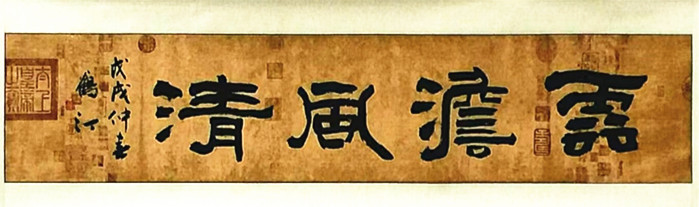 雲澹風清
戊戌仲春
鶴汀